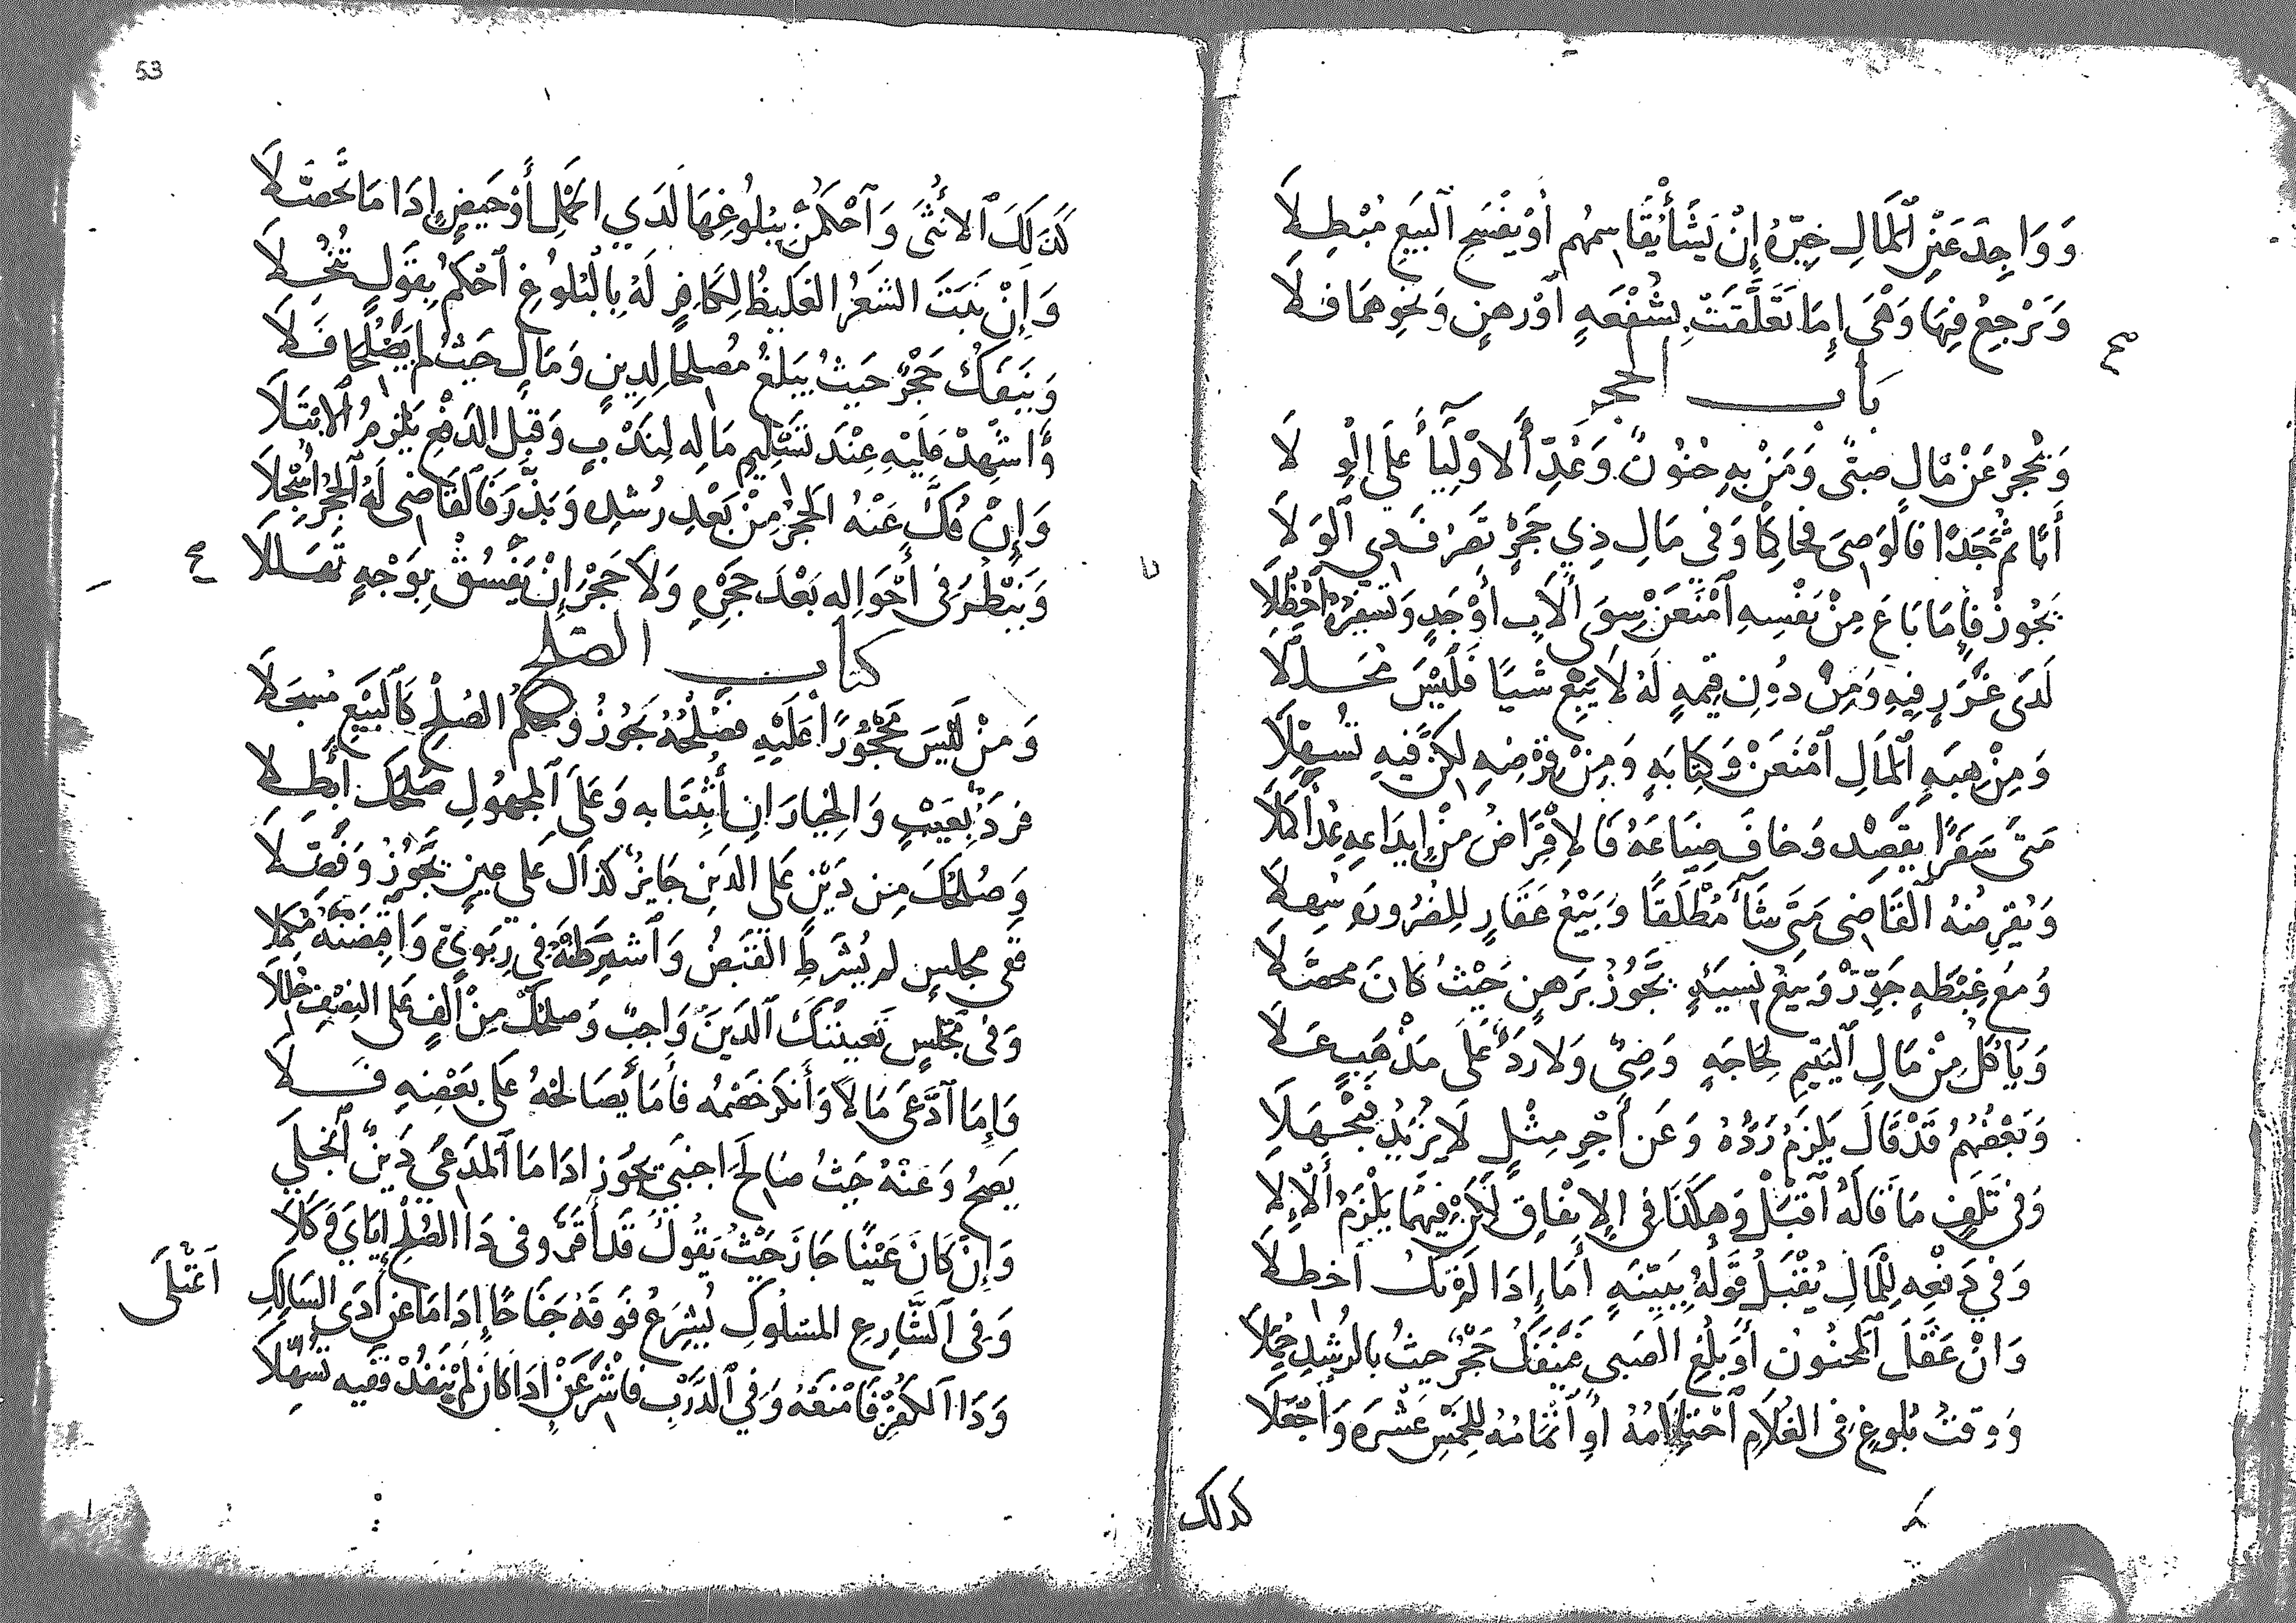 وَوَاجِدَ عَيْنِ ٱلْمَالِ خَيِّرْهُ إِنْ يَشَأْ يُقَاسِمُهُم أَوْ يَفْسَخِ ٱلبَيْعِ مُبْطِلَا
وَتَرْجِعُ فِيهَا وَهْيَ إِمَا تَعَلَّقَتْ بِشُفْعَةٍ أَوْ رَهنٍ وَنَحْوِهِمَا فَلَا
بَاب الحجر
وَيُحْجَرُ عَنْ مَالٍ صَبِيٌّ وَمَنْ بِهِ جُنُونٌ وَعُدّ ٱلأَوْلِيَاءَ عَلَى الْوِلَا
أَبًا ثُمَّ جَدًا فَالْوَصِىَ فَحَاكِمًا وَفِى مَالِ ذِي حَجْرٍ تَصَرُّفَ ذِي ٱلوِلَا
يَجُوزُ فَإِمَا بَاعَ مِنْ نَفْسِهِ ٱمْنَعَنْ سِوَى ٱلأَبِ أَوْ جَدٍ وَتَسْفِيرُهُ ٱحْظُلَا
لَدَى غَرَرٍ فِيهِ وَمِنْ دُونِ قِيْمَةٍ لَهُ لَا يَبِعْ شَيًا فَلَيْسَ مُحَلَّلَا
وَمِنْ هِبَةِ ٱلْمَالِ ٱمْنَعَنْ وَكِتَابَةٍ وَمِنْ قَرْضِهِ لَكِنَّ فِيهِ تَسَهُّلَا
مَتَى سَفَرًا يَقْصِدْ وَخَافَ ضَيَاعَهُ فَالإِقْرَاضُ مِنْ إِيدَاعِهِ عُدَّ أَكْمَلَا
وَيُقْرِضُهُ ٱلْقَاضِى مَتَى شَآءَ مُطْلَقًا وَبَيْعُ عَقَارٍ لِلضَرُورَهِ سُهِلَا
وَمَعْ غِبْطَةٍ جَوِّزْ وَبَيْعُ نَسِيئَةٍ يَجُوزُ بِرَهنٍ حَيْثُ كَانَ مُحَصَّلَا
وَيَأْكُلُ مِنْ مَالِ ٱليَتِيمِ لِحَاجَةٍ وَصِىٌّ وَلَا رَدٌّ عَلَى مَذْهَبٍ عَلَا
وَبَعْضُهُمُ قَدْ قَالَ يَلْزَمُ رَدُّهُ وَعَنْ أَجْرِ مِثْلٍ لَا يَزِيدُ فَيُجْهَلَا
وَفِى تَلَفٍ مَا قَالَهُ ٱقْبَلْ وَهَكَذَا فِى الإِنْفَاقِ لَكِنْ فِيهُمَا يَلْزَمُ ٱلإِلَا
وَفِي دَفْعِهِ لِلْمَالِ يُقْبَلُ قَوْلُهُ بِبَيِّنَةٍ أَمَا إِذَا لَمْ تَكُ ٱحْظُلَا
وَانْ عَقَلَ ٱلْمَجْنُونُ أَوْ بَلَغَ الصَبِى فَيَنْفَكُّ حَجْرٌ حَيْثُ بِالرُشِدِ جُمِّلَا
وَوَقْتُ بُلُوغٍ فِى الغُلَامِ ٱحْتِلَامُهُ أَوِ ٱتْمَامُهُ لِلخَمْسِ عَشْرَهَ وَٱجْعَلَا
كذلك
53
كَذَلَكَ ٱلأُنْثَى وَٱحْكُمَنْ بِبُلُوغِهَا لَدَي الحَمْلِ أَوْ حَيْضٍ إِذَا مَا تَحَصَّلَا
وَإِنْ نَبَتَ الشَعْرُ الغَلِيظُ لِكَافِرٍ لَهُ بِالْبُلُوغِ ٱحْكُمْ بِقَوْلٍ تُنُخِّلَا
وَيَنْفَكُّ حَجْرٌ حَيْثُ يَبْلُغُ مُصْلِحًا لِدِينٍ وَمَالٍ حَيْثُ لَم يَصْلُحَا فَلَا
وَاشْهِدْ عَلَيْهِ عِنْدَ تَسْلِيمِ مَالِهِ لِنَدْبٍ وَقَبْلَ الدَفْعِ يَلْزَمُ ٱلابْتَلَا
وَإِنْ فُكَّ عَنْهُ الحَجْرُ مِنْ بَعْدِ رُشْدِهِ وَبَذَّرَ فَالقَاضِى لَهُ ٱلحَجْرُ أُسْجِلَا
وَيَنْظُرَ فِى أَحْوَالِهِ بَعْدَ حَجْرِهِ وَلَا حَجْرَ إِنْ يَفْسُقْ بِوَجْهٍ تَعَلَّلَا
كتاب الصلح
وَمَنْ لَيْسَ مَحْجُورًا عَلَيْهِ فَصُلْحُهُ يَجُوزُ وَحُكْمُ الصُلْحِ كَٱلبَيْعِ مُسْجَلَا
فَرَدَّ بِعَيْبٍ وَالخِيَارَانِ أُثْبِتَا بِهِ وَعَلَى ٱلمَجهُولِ صُلْحُكَ أَبْطِلَا
وَصُلْحُكَ مِن دَيْنٍ عَلَى الدَيْنِ جَايِزٌ كَذَا لَ عَلَى عَيْنٍ تَجُوزُ وَفَصِّلَا
فَفِى مَجلِسٍ لَم يُشْرَطِ القَبْضُ وَٱشْتَرِطْهُ فِي رِبَوِيٍّ وَاقْبِضَنْهُ مُكَمَّلَا
وَفِى مَجْلِسٍ تَعْيِينُكَ ٱلدَينَ وَاجِبٌ وَصُلْحُكَ مِنْ أَلفٍ عَلَى النِصْفِ حُلِّلَا
وَإِمَا ٱدَّعَى مَالاً وَأَنْكَرَ خَصْمُهُ فَأَمَا يُصَالِحْهُ عَلَى بَعْضِهِ فَلَا
يَصِحُّ وَعَنْهُ حَيْثُ صَالَحَ اجنَبِيّ يَجُوزُ اذَا مَا ٱلْمُدَّعَى دَيْنٌ ٱنْجَلَي
وَإِنْ كَانَ عَيْنًا جَازَ حَيْثُ يَقُولُ قَدَ أقَرَّ وَفِى ذَا الصُلْحِ إِيَّايَ وَكَّلَا
وَفِى ٱلشَّارِعِ المَسْلُوكِ يُشْرِعُ فَوْقَهُ جَنَاحًا إِذَا مَا عَن أَذَى السَالِكِ ٱعْتَلَى
وَذَا ٱلكُفْرِ فَامْنَعْهُ وَفِي ٱلدَّرْبِ فَاشْرَعَنْ إِذَا كَانَ لَمْ يَنْفُذْ فَفِيهِ تَسَهَّلَا